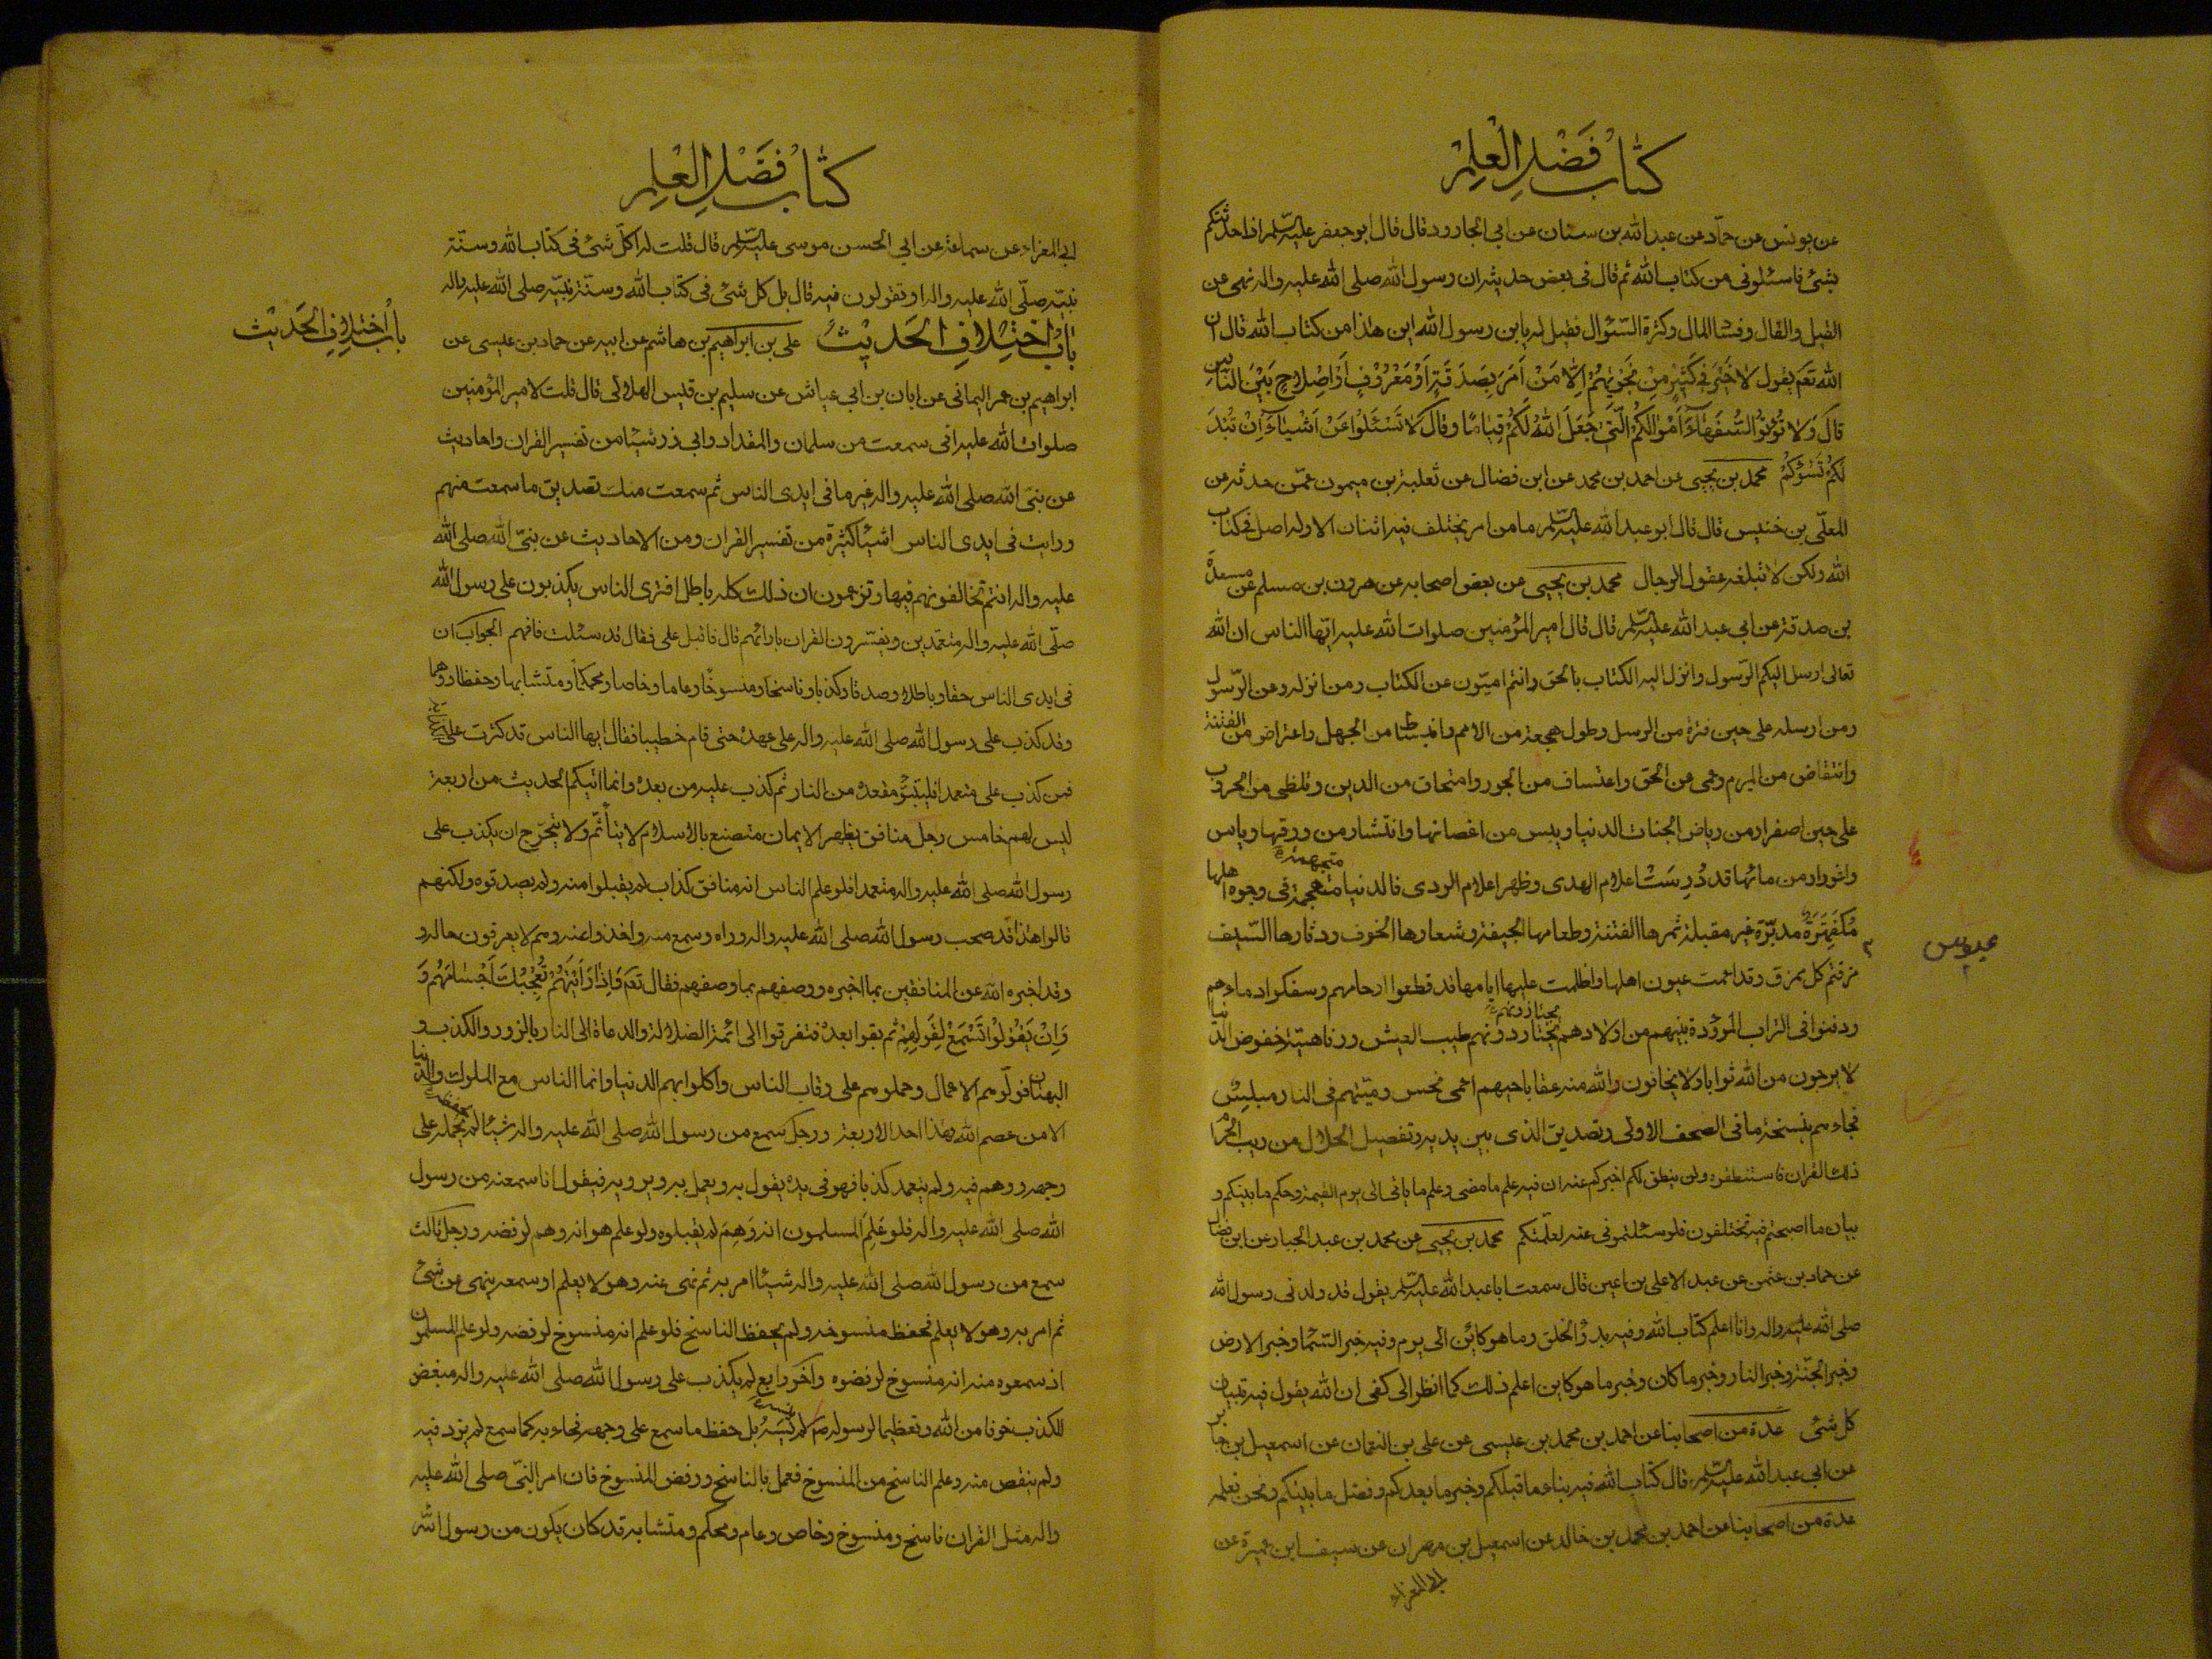 كتاب فضل العلم
عن يونس عن حماد عن عبد الله بن سنان عن ابي الجارود قال قال ابو جعفر عليه السلم اذا حدثتكم
بشئ فاسئلوني من كتاب الله ثم قال في بعض حديثه ان رسول الله صلى الله عليه واله نهى عن
القيل والقال وفساد المال وكثرة السؤال فقيل له يا بن رسول الله اين هذا من كتاب الله قال ان
الله تع يقول لا خير في كثير من نجويهم الا من امر بصدقة او معروف او اصلاح بين الناس
قال ولا تؤتوا السفهاء اموالكم التي جعل الله لكم قياما وقال لا تسئلوا عن اشياء ان تبد
لكم تسؤكم محمد بن يحيى عن احمد بن محمد عن ابن فضال عن ثعلبة بن ميمون عمن حدثه عن
المعلى بن خنيس قال قال ابو عبد الله عليه السلم ما من امر يختلف فيه اثنان الا وله اصل في كتاب
الله ولكن لا تبلغه عقول الرجال محمد بن يحيى عن بعض اصحابه عن هرون بن مسلم عن مسعدة
بن صدقة عن ابي عبد الله عليه السلم قال قال امير المؤمنين صلوات الله عليه ايها الناس ان الله
تعالى ارسل اليكم الرسول وانزل اليه الكتاب بالحق وانتم اميون عن الكتاب ومن انزله وعن الرسول
ومن ارسله على حين فترة من الرسل وطول هجعة من الامم وانبساط من الجهل واعتراض من الفتنة
وانتقاض من المبرم وعمى عن الحق واعتساف من الجور وامتحاق من الدين وتلظى من الحروب
على حين اصفرار من رياض الجنات الدنيا ويبس من اغصانها وانتشار من ورقها وياس
واغورار من مائها قد درست اعلام الهدى وظهر اعلام الردى فالدنيا متهجمة في وجوه اهلها
مكفهرة مدبرة غير مقبلة ثمرها الفتنة وطعامها الجيفة وشعارها الخوف ودثارها السيف
عبوس
مزقتم كل ممزق وقد اعمت عيون اهلها واظلمت عليها ايامها قد قطعوا ارحامهم وسفكوا دماءهم
ودفنوا في التراب الموؤدة بينهم من اولادهم يجتاز دونهم طيب العيش ورفاهية خفوض الدنيا
لا يرجون من الله ثوابا ولا يخافون والله منه عقابا حيهم اعمى نجس وميتهم في النار مبلس
فجاءهم بنسخة ما في الصحف الاولى وتصديق الذي بين يديه وتفصيل الحلال من ريب الحرام
ذلك القران فاستنطقوه ولن ينطق لكم اخبركم عنه ان فيه علم ما مضى وعلم ما ياتي الى يوم القيمة وحكم ما بينكم و
بيان ما اصبحتم فيه تختلفون فلو سئلتموني عنه لعلمتكم محمد بن يحيى عن محمد بن عبد الجبار عن ابن فضال
عن حماد بن عثمن عن عبد الاعلى بن اعين قال سمعت ابا عبد الله عليه السلم يقول قد ولدني رسول الله
صلى الله عليه واله وانا اعلم كتاب الله وفيه بدؤ الخلق وما هو كائن الى يوم وفيه خبر السماء وخبر الارض
وخبر الجنة وخبر النار وخبر ما كان وخبر ما هو كاين اعلم ذلك كما انظر الى كفي ان الله يقول فيه تبيان
كل شئ عدة من اصحابنا عن احمد بن محمد بن عيسى عن علي بن النعمان عن اسمعيل بن جابر
عن ابي عبد الله عليه السلم قال كتاب الله فيه نباء ما قبلكم وخبر ما بعدكم وفصل ما بينكم ونحن نعلمه
عدة من اصحابنا عن احمد بن محمد بن خالد عن اسمعيل بن مهران عن سيف ابن عميرة عن
ابي المعزاء
كتاب فضل العلم
ابي المعزاء عن سماعة عن ابي الحسن موسى عليه السلم قال قلت له اكل شئ في كتاب الله وسنة
نبيه صلى الله عليه واله او تقولون فيه قال بل كل شئ في كتاب الله وسنة نبيه صلى الله عليه واله
باب اختلاف الحديث
باب اختلاف الحديث علي بن ابراهيم بن هاشم عن ابيه عن حماد بن عيسى عن
ابراهيم بن عمر اليماني عن ابان بن ابي عياش عن سليم بن قيس الهلالي قال قلت لامير المؤمنين
صلوات الله عليه اني سمعت من سلمان والمقداد وابي ذر شيئا من تفسير القران واحاديث
عن نبي الله صلى الله عليه واله غير ما في ايدي الناس ثم سمعت منك تصديق ما سمعت منهم
ورايت في ايدي الناس اشيئا كثيرة من تفسير القران ومن الاحاديث عن نبي الله صلى الله
عليه واله انتم تخالفونهم فيها وتزعمون ان ذلك كله باطل افترى الناس يكذبون على رسول الله
صلى الله عليه واله متعمدين ويفسرون القران بارائهم قال فاقبل علي فقال قد سئلت فافهم الجواب ان
في ايدي الناس حقا وباطلا وصدقا وكذبا وناسخا ومنسوخا وعاما وخاصا ومحكما ومتشابها وحفظا ووهما
وقد كذب على رسول الله صلى الله عليه واله على عهده حتى قام خطيبا فقال ايها الناس قد كثرت علي
فمن كذب علي متعمدا فليتبؤ مقعده من النار ثم كذب عليه من بعده وانما اتيكم الحديث من اربعة
ليس لهم خامس رجل منافق يظهر الايمان متصنع بالاسلام لا يتأثم ولا يتحرج ان يكذب على
رسول الله صلى الله عليه واله متعمدا فلو علم الناس انه منافق كذاب لم يقبلوا منه ولم يصدقوه ولكنهم
قالوا هذا قد صحب رسول الله صلى الله عليه واله وراه وسمع منه واخذوا عنه وهم لا يعرفون حاله و
وقد اخبره الله عن المنافقين بما اخبره ووصفهم بما وصفهم فقال تع واذا رايتهم تعجبك اجسامهم و
وان يقولوا تسمع لقولهم ثم بقوا بعده فتقربوا الى ائمة الضلالة والدعاة الى النار بالزور والكذب و
البهتان فولوهم الاعمال وحملوهم على رقاب الناس واكلوا بهم الدنيا وانما الناس مع الملوك والدنيا
الا من عصم الله فهذا احد الاربعة ورجل سمع من رسول الله صلى الله عليه واله شيئا لم يحمله على
وجهه ووهم فيه ولم يتعمد كذبا فهو في يده يقول به ويعمل به ويرويه فيقول انا سمعته من رسول
الله صلى الله عليه واله فلو علم المسلمون انه وهم لم يقبلوه ولو علم هو انه وهم لرفضه ورجل ثالث
سمع من رسول الله صلى الله عليه واله شيئا امر به ثم نهى عنه وهو لا يعلم او سمعه ينهى عن شئ
ثم امر به وهو لا يعلم فحفظ منسوخه ولم يحفظ الناسخ فلو علم انه منسوخ لرفضه ولو علم المسلمون
اذ سمعوه منه انه منسوخ لرفضوه واخر رابع لم يكذب على رسول الله صلى الله عليه واله مبغض
للكذب خوفا من الله وتعظيما لرسوله ص لم ينسه بل حفظ ما سمع على وجهه فجاء به كما سمع لم يزد فيه
ولم ينقص منه وعلم الناسخ من المنسوخ فعمل بالناسخ ورفض المنسوخ فان امر النبي صلى الله عليه
واله مثل القران ناسخ ومنسوخ وخاص وعام ومحكم ومتشابه قد كان يكون من رسول الله